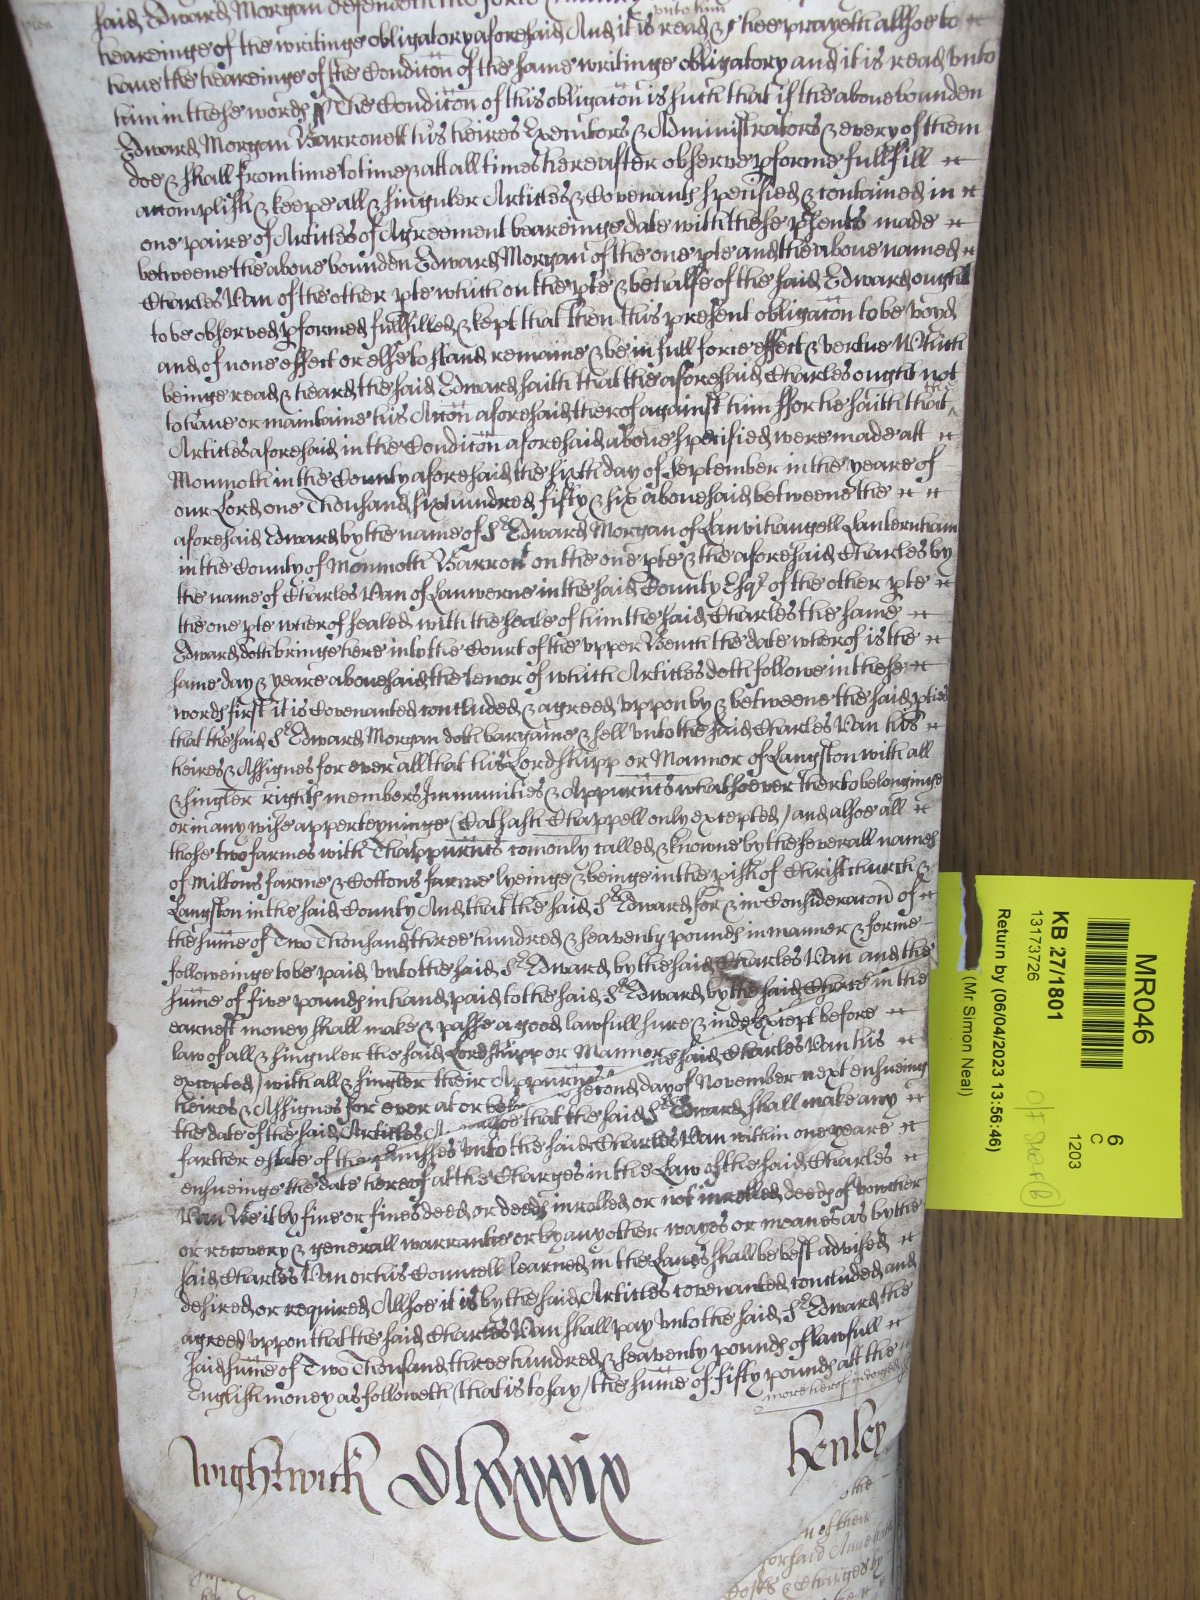 said Edward Morgan defendeth the force
heareinge of the writinge obligatory aforesaid And it is read &c hee prayeth allsoe to
unto him
have the heareinge of the Condicõn of the same writinge obligatory and it is read unto
him in these words // The Condicõn of this obligacõn is such that if the above bounden
Edward Morgan Barronett his heires Executors & Administrators & every of them
doe & shall from time to time & att all times hereafter observe pforme fullfill
accomplish & keepe all & singuler Articles & Covenants specified & contained in
one paire of Articles of Agreement beareinge date with these psents made
betweene the above bounden Edward Morgan of the one pte and the above named
Charles Van of the other pte which on the pte & behalfe of the said Edward ought
to be observed pformed fullfilled & kept that then this present obligacõn to be voyd
and of none effect or else to stand remaine & be in full force effect & vertue Which
beinge read & heard the said Edward saith that the aforesaid Charles ought not
to have or maintaine his Accõn aforesaid therof against him ffor he saith that
the
Articles aforesaid in the Condicõn aforesaid above specified were made att
Monmoth in the County aforesaid the sixth day of September in the yeare of
our Lord one Thousand six hundred fifty & six abovesaid betweene the
aforesaid Edward by the name of Sr Edward Morgan of Lanvihangell Lanternham
in the County of Monmoth Barrott on the one pte & the aforesaid Charles by
the name of Charles Van of Lanwerne in the said County Esqr of the other pte
the one pte wherof sealed with the seale of him the said Charles the same
Edward doth bringe here into the Court of the upper Bench the date wherof is the
same day & yeare abovesaid the tenor of which Articles doth followe in these
words first it is Covenanted concluded & agreed uppon by & betweene the said pties
that the said Sr Edward Morgan doth bargaine & sell unto the said Charles Van his
heires & Assignes for ever all that his Lordshipp or Mannor of Langston with all
& singler rights members Immunities & Appurñts whatsoever therto belonginge
or in any wise apperteyninge (Cathash Chappell only excepted) and alsoe all
those two farmes with Thappurñts comonly called & knowne by the severall names
of Miltons farme & Cottons farme lyeinge & beinge in the pish of Christchurch &
Langston in the said County And that the said Sr Edward for & in Consideracõn of
the sum̃e of Two Thousand three hundred & seaventy pounds in manner & forme
followeinge to be paid unto the said Sr Edward by the said Charles Van and the
sum̃e of five pounds in hand paid to the said Sr Edward by the said Charles in the
earnest money shall make & passe a good lawfull sure & except before
law of all & singuler the said Lordshipp or Mannor said Charles Van his
excepted) with all & singler their Appurñts second day of November next ensueing
heires & Assignes for ever at or before that the said Sr Edward shall make any
the date of the said Articles
farther estate of the pmisses unto the said Charles Van within one yeare
ensueinge the date hereof att the Charges in the Law of the said Charles
Van Bee it by fine or fines deed or deeds inrolled or not inrolled deeds of vowcher
or recovery & generall warrantie or by any other wayes or meanes as by the
said Charles Van or his Councell learned in the Lawes shall be best advised
desired or required Allsoe it is by the said Articles covenanted concluded and
agreed uppon that the said Charles Van shall pay unto the said Sr Edward the
said sum̃e of Two Thousand three hundred & seaventy pounds of lawfull
English money as followeth (that is to say) the sum̃e of fifty pounds att the
more hereof indorsed
Wightwick Dlxxxxix Henley
the
n of their
Costs & Charges by
MR046
6
C
1203
KB 27/1801
13173726
Return by (06/04/2023 13:56:46)
(Mr Simon Neal)